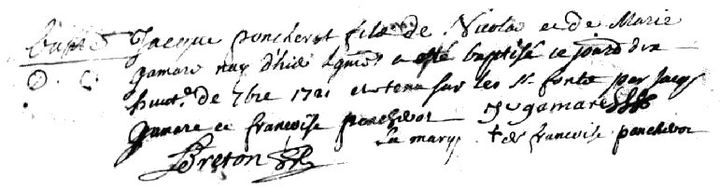 Jacque poncherot fils de Nicolas et de Marie
gamare nay d'hier a esté baptisé ce jourd
huit de 7bre 1721 et tenu sur les St fonts par Jacq
gamare et francoise poncherot J gamare
La marq † de francoise poncherot
LBreton